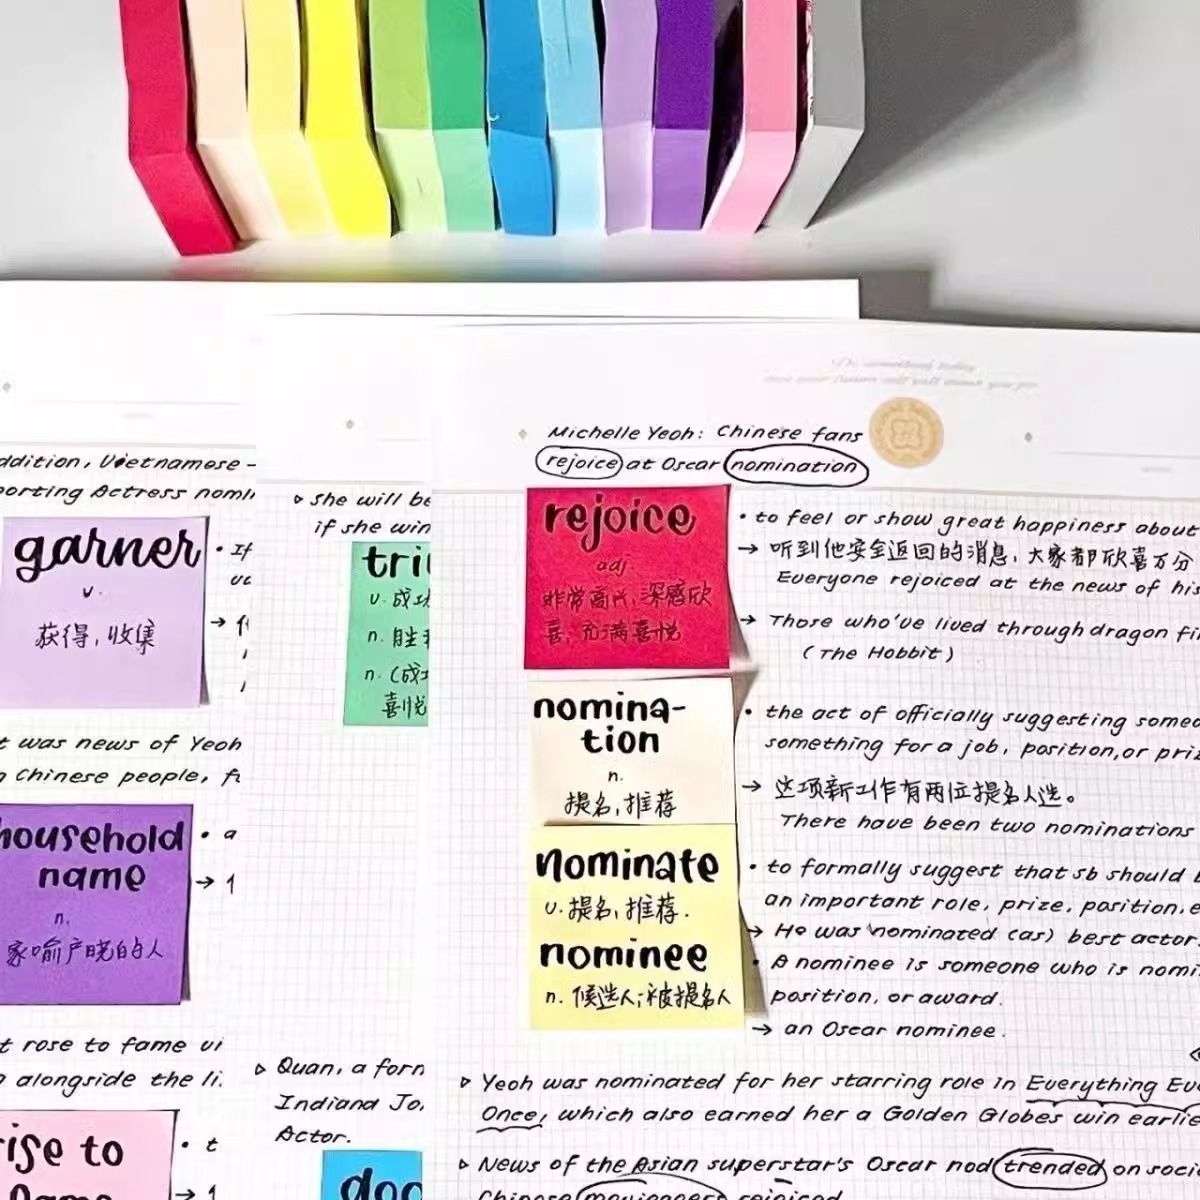 Michelle Yeoh: Chinese fans
rejoice at Oscar nomination
rejoice
adj.
非常高兴,深感欣
喜,充满喜悦
• to feel or show great happiness about
→ 听到他安全返回的消息,大家都欣喜万分
Everyone rejoiced at the news of his
→ Those who've lived through dragon fi
(The Hobbit)
nomina-
tion
n.
提名,推荐
• the act of officially suggesting someo
something for a job, position, or priz
→ 这项新工作有两位提名人选。
There have been two nominations
nominate
v. 提名,推荐.
• to formally suggest that sb should b
an important role, prize, position, e
→ He was nominated (as) best actor.
nominee
n. 候选人;被提名人
• A nominee is someone who is nomi
position, or award.
→ an Oscar nominee.
▷ Yeoh was nominated for her starring role in Everything Eve
Once, which also earned her a Golden Globes win earlie
▷ News of the Asian superstar's Oscar nod trended on soci
Chinese moviegoers rejoiced
▷ She will be
if she win
triu
v. 成功
n. 胜利
n. (成功
喜悦
▷ Quan, a form
Indiana Jo
Actor.
doc
ddition, Vietnamese –
porting Actress nomi
garner
v.
获得,收集
• If
→
t was news of Yeoh
g Chinese people, f
household
name
n.
家喻户晓的人
• a
→ 1
t rose to fame vi
alongside the li
rise to
fame
• t
→ 1